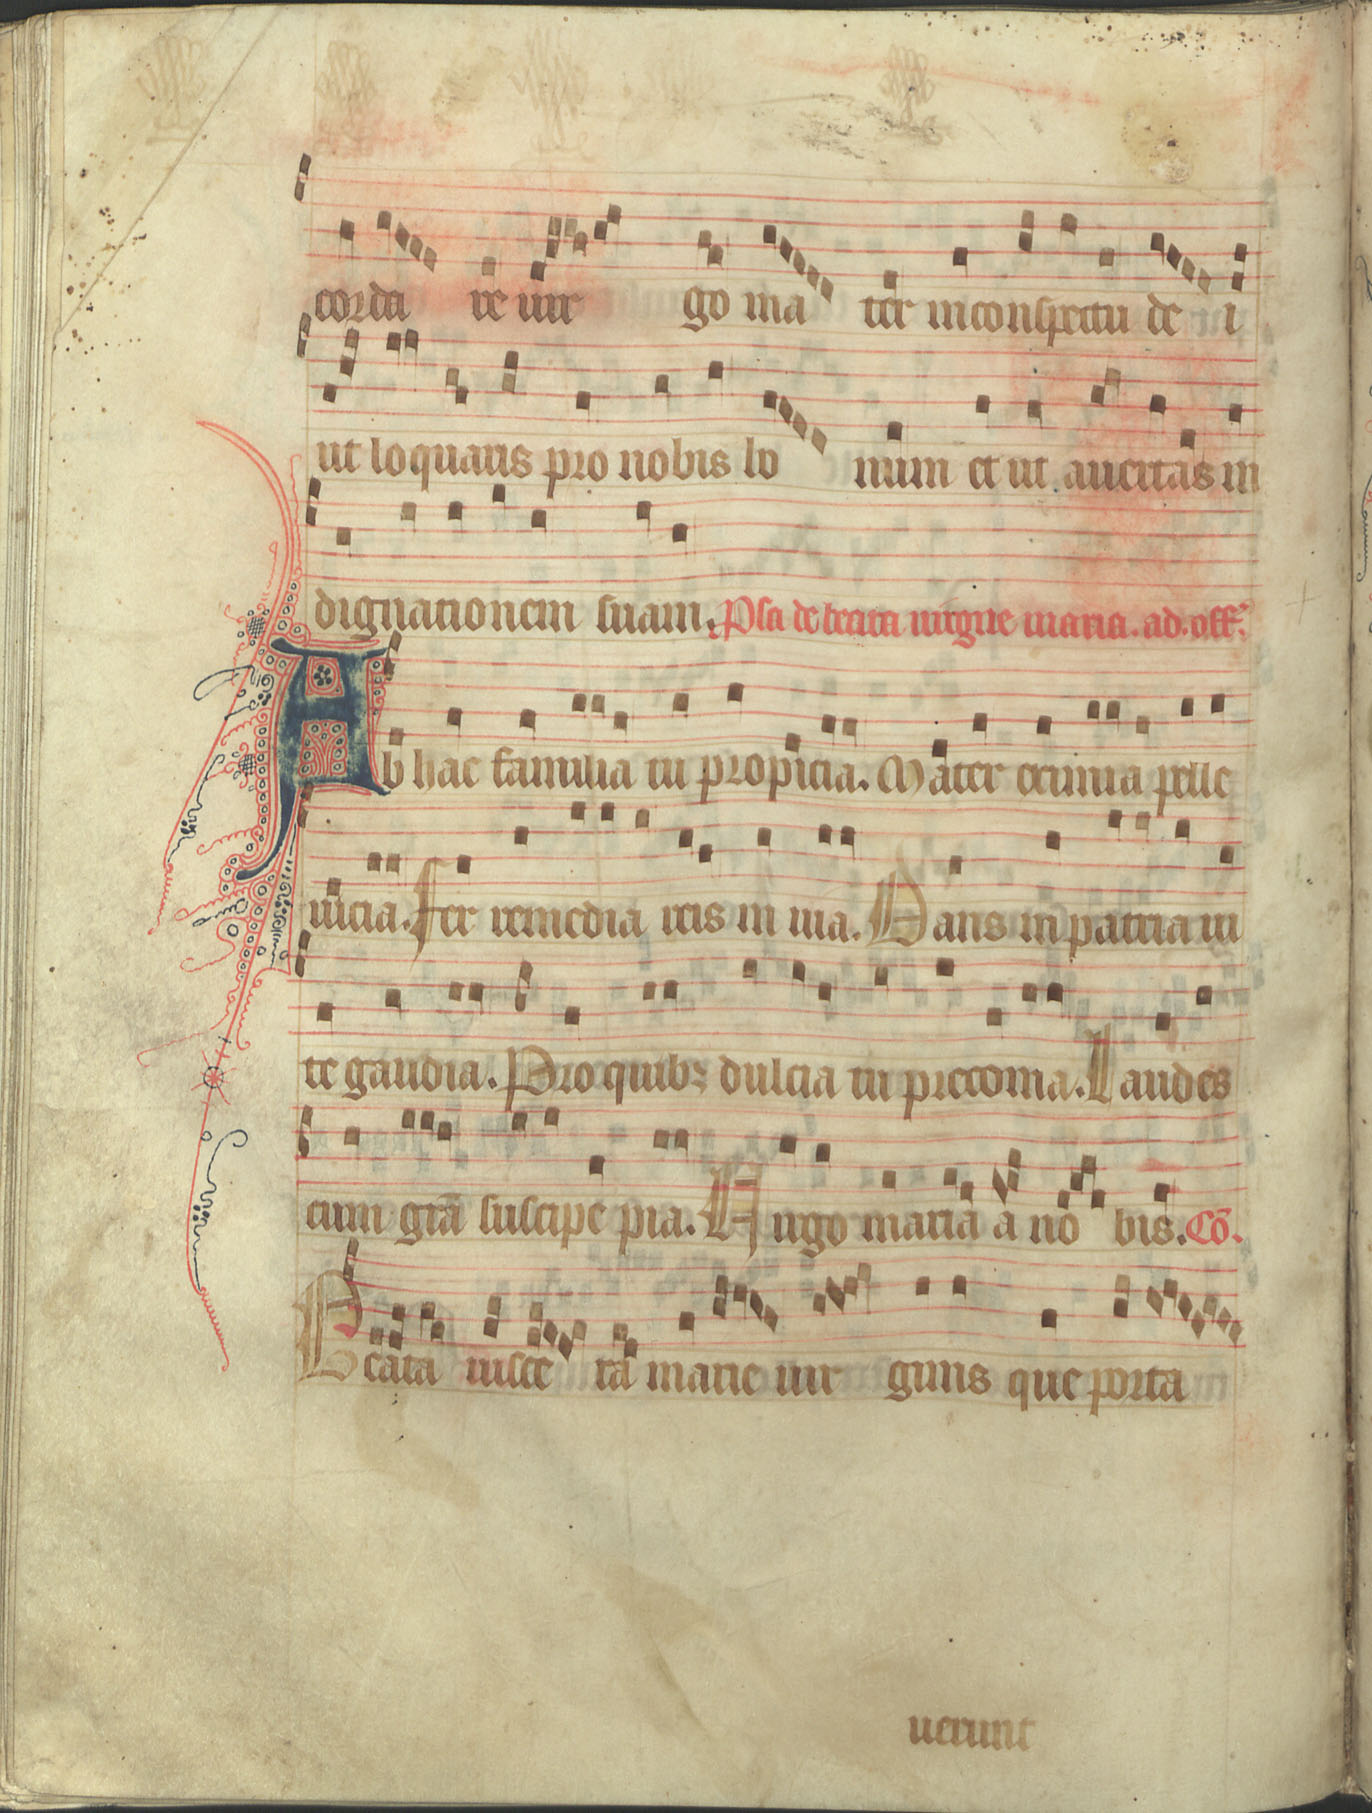 corda re uir go ma ter in conspectu de i
ut loquaris pro nobis bo num et ut auertas in
dignationem suam. Psa de beata uirgine maria. ad. off.
Ab hac familia tu propicia. Mater eximia pelle
uicia. Fer remedia reis in uia. Dans in patria ui
te gaudia. Pro quibꝫ dulcia tu preconia. Laudes
cum grā suscipe pia. A uirgo maria a no bis. Cō.
Beata uisce ra marie uir ginis que porta
uerunt